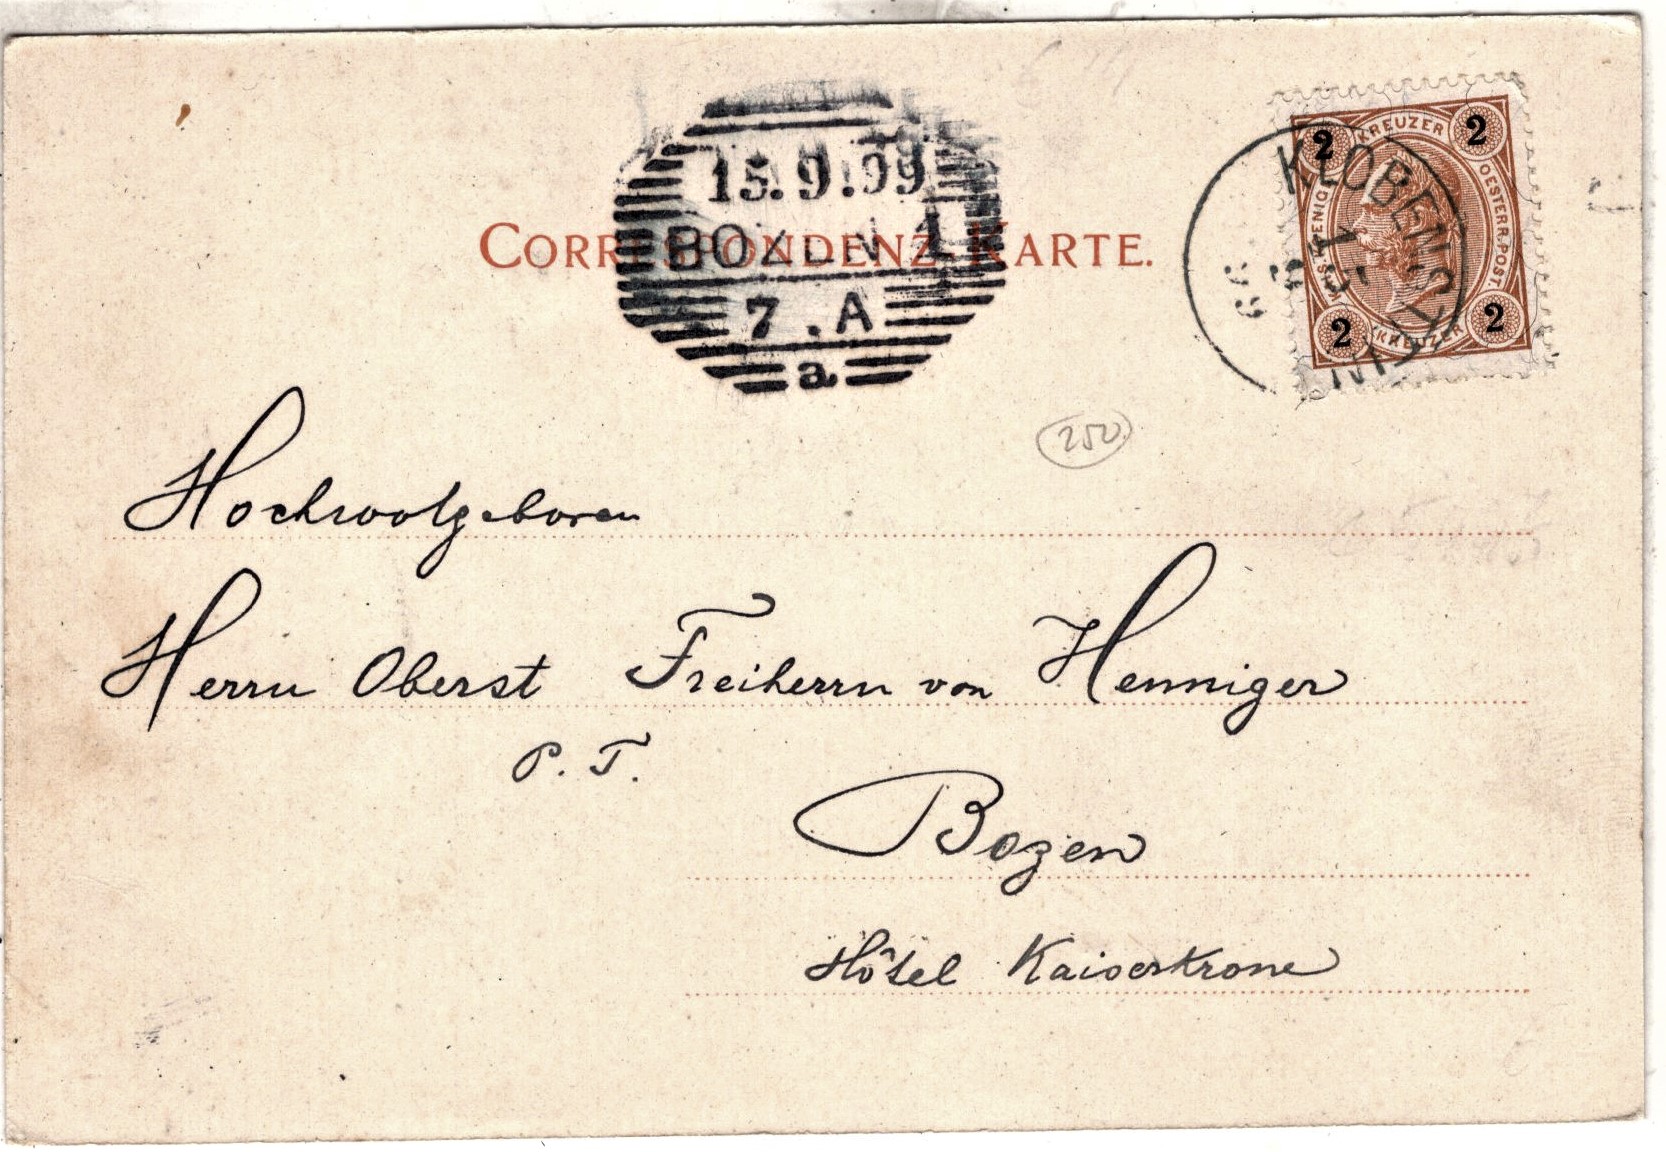 15.9.99
CORRESPONDENZ-KARTE.
BOZEN 1
7.A
a
KREUZER
2 2
OESTERR. POST.
2 2
KREUZER
KLOBENSTEIN
99
250
Hochwolgeboren
Herrn Oberst Freiherrn von Henniger
P. T.
Bozen
Hôtel Kaiserkrone